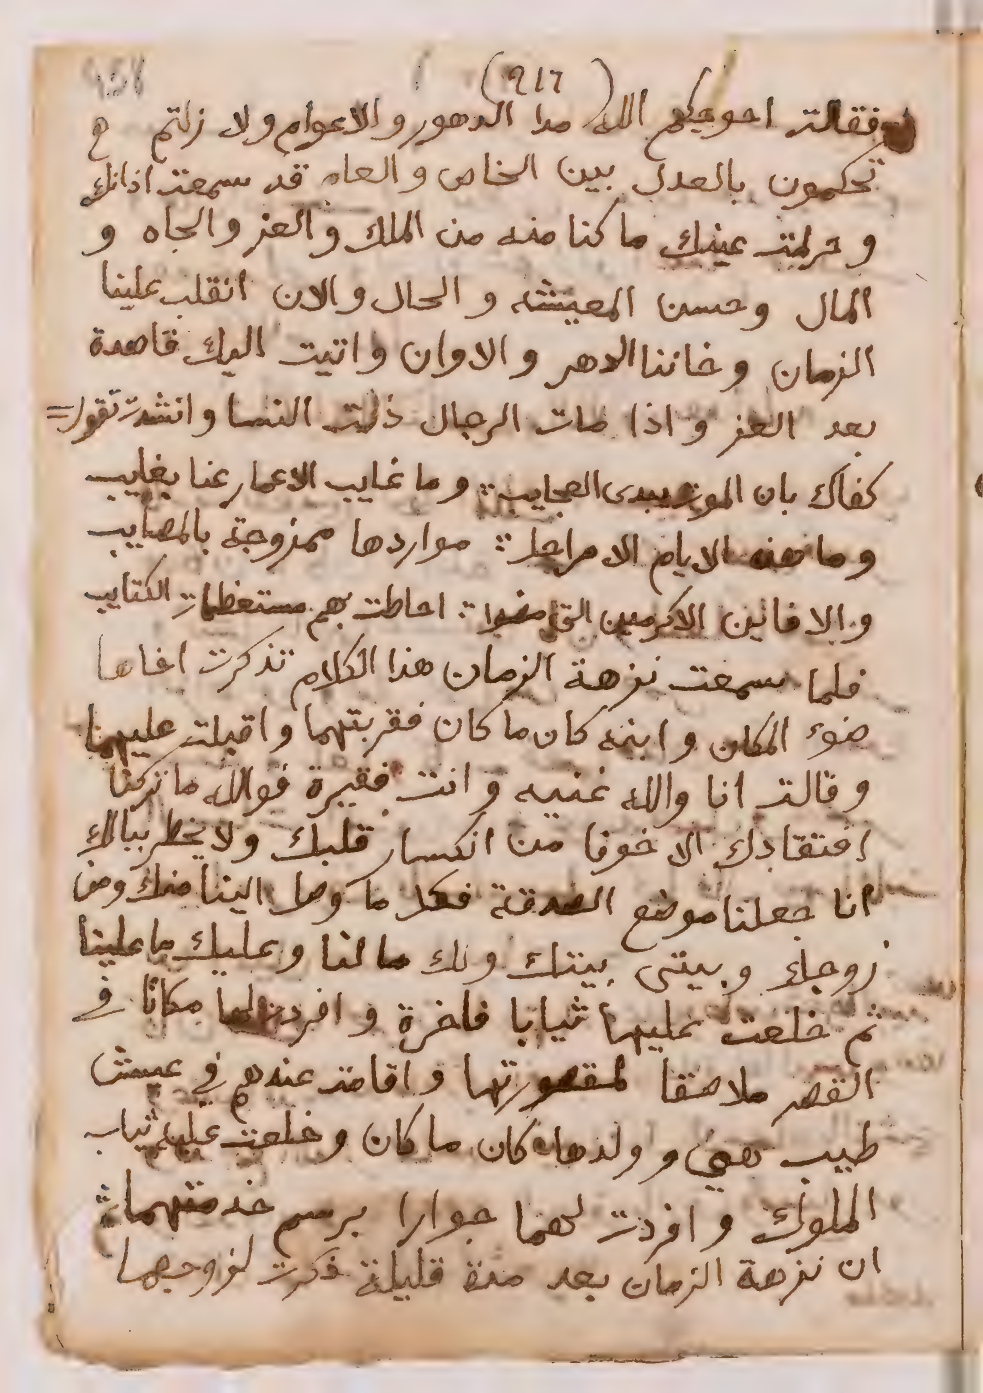 (٩١٦)
فقالت احوجكم الله مدا الدهور والاعوام ولا زلتم
تحكمون بالعدل بين الخاص والعام قد سمعت اذانك
و عينك ما كنا منه من الملك والعز والجاه و
المال وحسن المعيشه والحال والان انقلب علينا
الزمان وخاننا الدهر والاوان واتيت اليك قاصدة
بعد العز واذا مات الرجال ذلت النسا وانشدت تقول
كفاك بان الموت يبدى العجايب وما غايب الاعمار عنا بغايب
وما هذه الايام الا مراحل مواردها ممزوجة بالمصايب
والا فاين الاكرمين التى مضوا احاطت بهم مستعظمات الكتايب
فلما سمعت نزهة الزمان هذا الكلام تذكرت اخاها
ضوء المكان وابنه كان ما كان فقربتهما واقبلت عليهما
وقالت انا والله غنيه وانت فقيرة فوالله ما تركنا
افتقادك الا خوفا من انكسار قلبك ولا يخطر ببالك
انا جعلنا موضع الصدقة فكل ما وصل الينا منك ومن
زوجك وبيتى بيتك ولك ما لنا وعليك ما علينا
ثم خلعت عليها ثيابا فاخرة وافردت لها مكانا في
القصر ملاصقا لمقصورتها واقامت عندهم في عيش
طيب هني وولدها كان ما كان وخلعت عليه ثياب
الملوك وافردت لهما جوارا برسم خدمتهما
ان نزهة الزمان بعد مدة قليلة ذكرت لزوجها